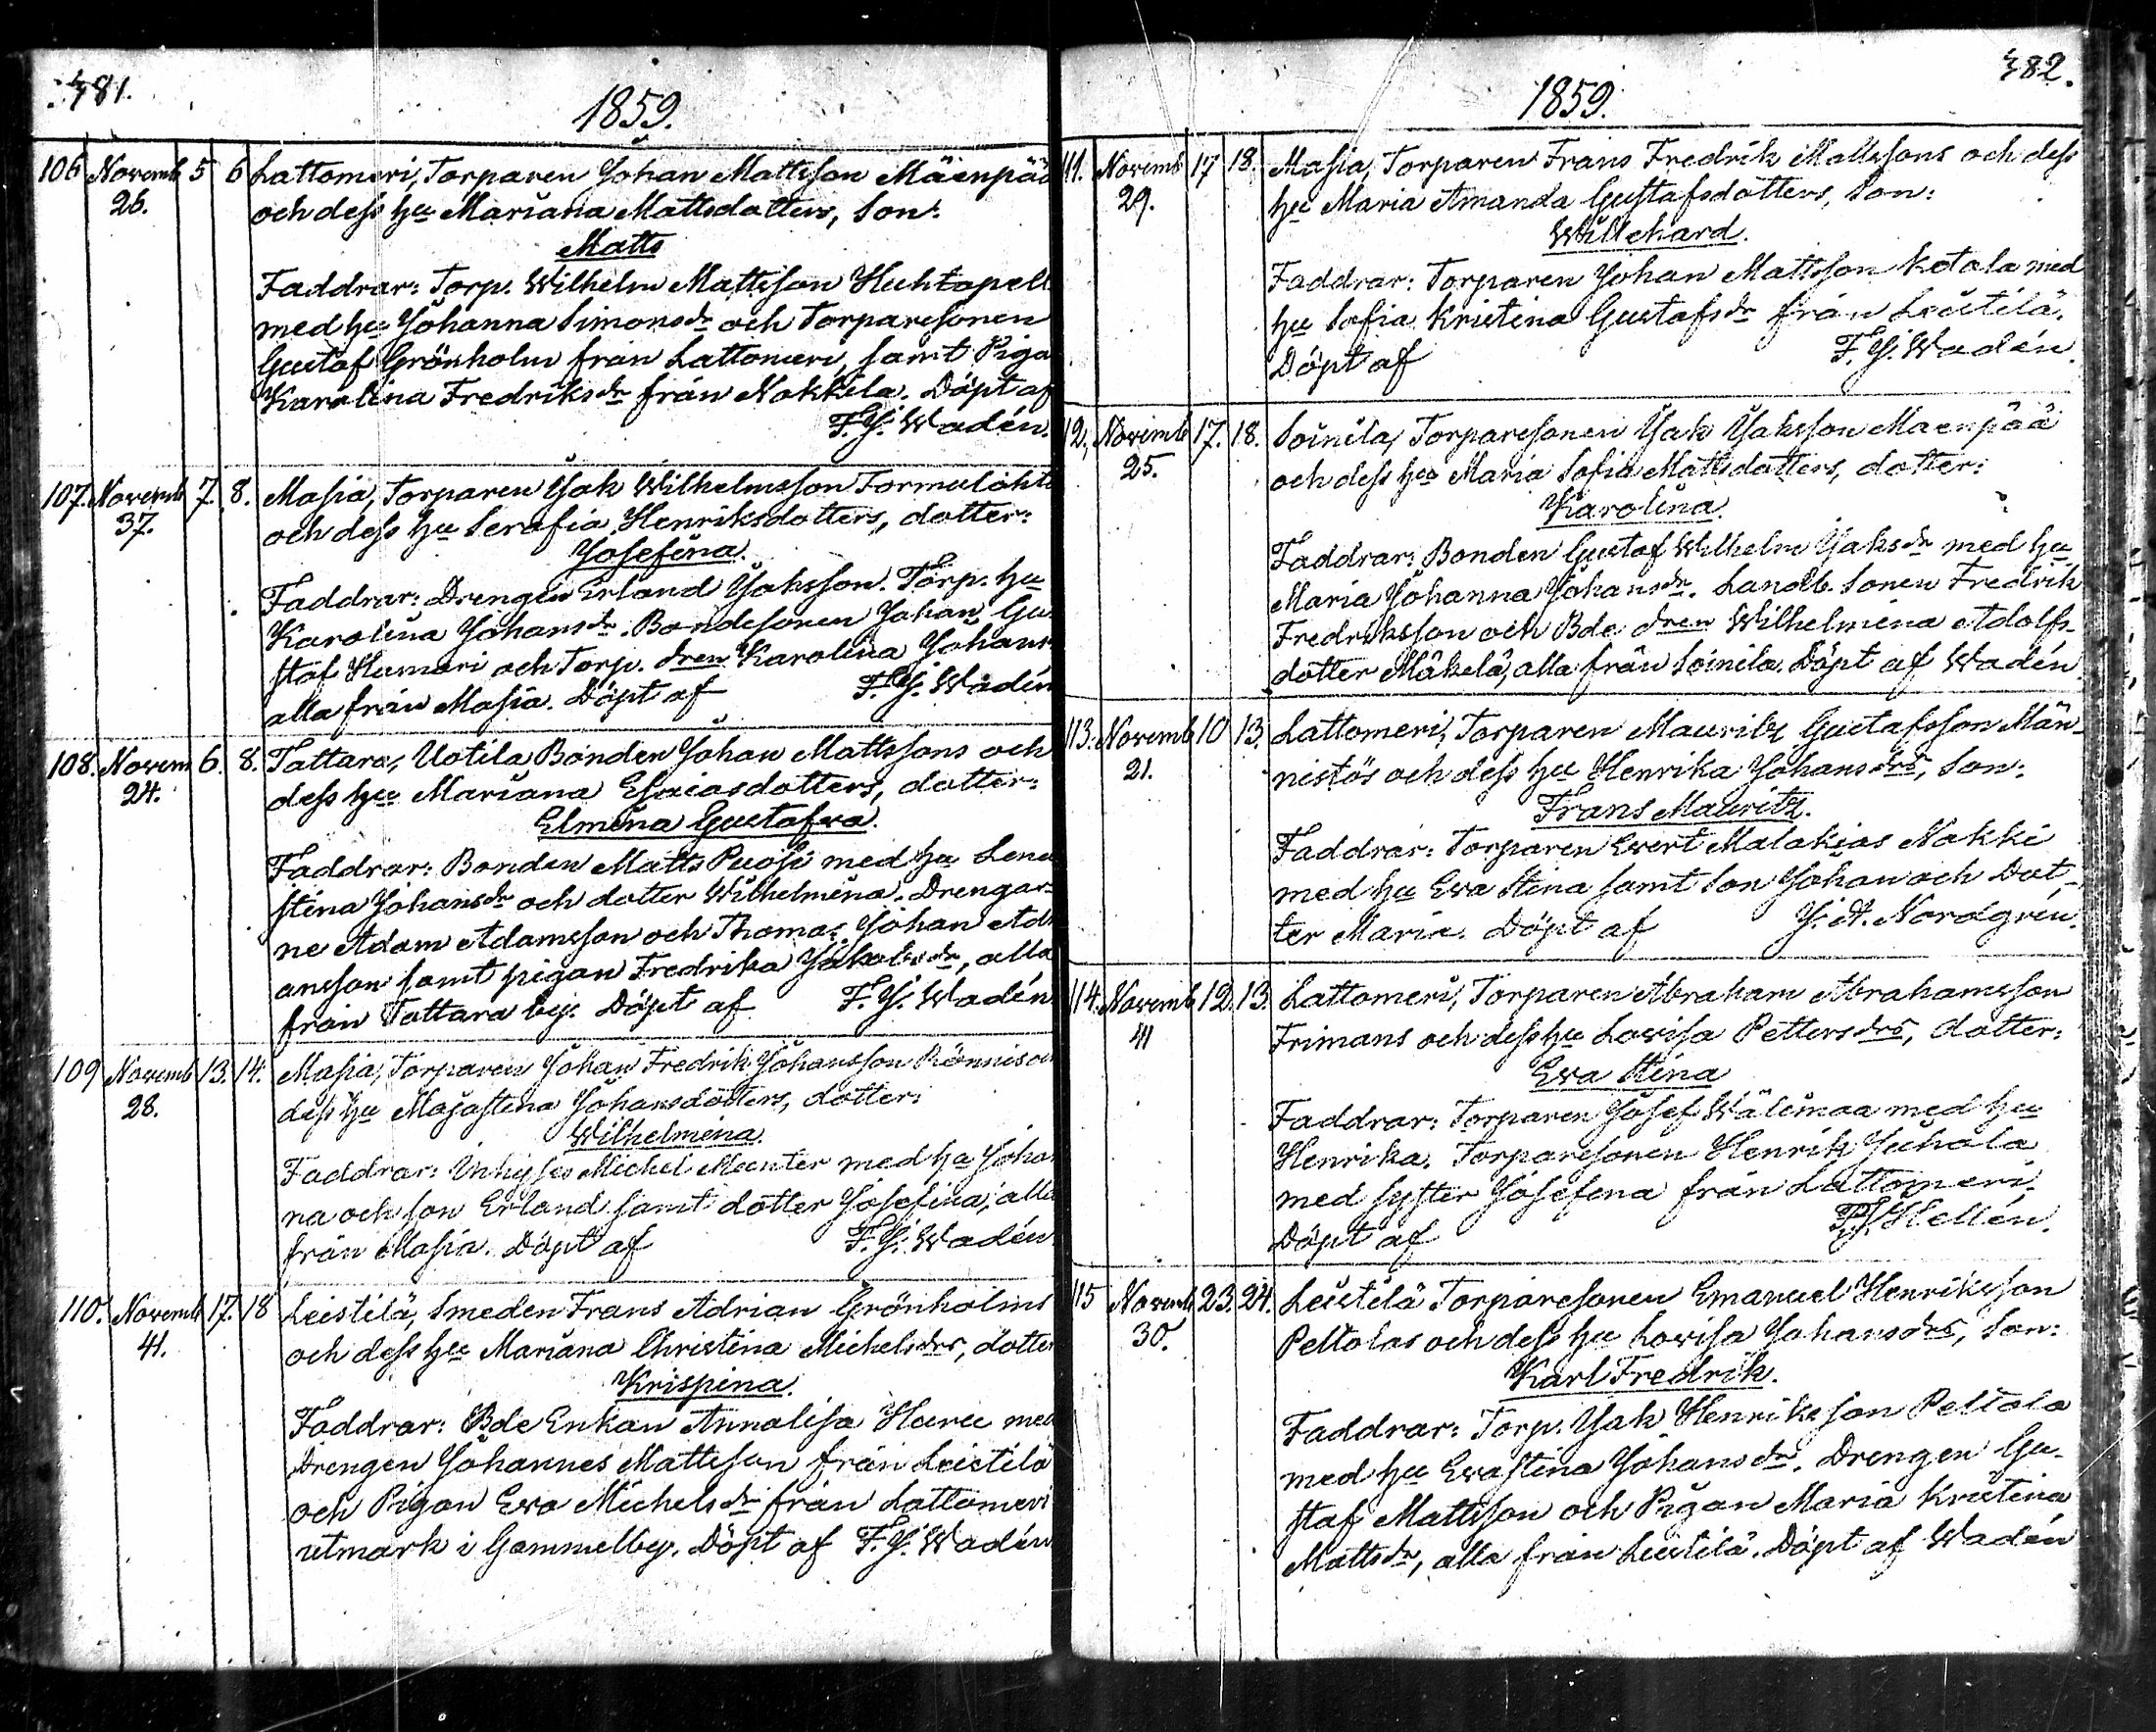 381.
1859.
106 Novemb 5 6 Lattomeri, Torparen Johan Mattsson Mäenpää
26. och dess hu Mariana Mattsdotters, Son:
Matts
Faddrar: Torp. Wilhelm Mattsson Huhtapell
med hu Johanna Simonsdr och Torparesonen
Gustaf Grönholm från Lattomeri, samt Piga
Karolina Fredriksdr från Nakkila. Döpt af
F. J. Wadén.
107. Novemb 7. 8. Masia, Torparen Jak Wilhelmsson Tormälähti
37. och dess hu Serafia Henriksdotters, dotter:
Josefina.
Faddrar: Drengen Erland Jaksson. Torp. hu
Karolina Johansdr. Bondesonen Johan Gu-
staf Humeri och Torp. dren Karolina Johans
alla från Masia. Döpt af F. J. Wadén
108. Novem 6. 8. Tattara, Uotila Bonden Johan Mattssons och
24. dess hu Mariana Esaiasdotters, dotter:
Elmina Gustafva.
Faddrar: Bonden Matts Puosi med hu Lena
stina Johansdr och dotter Wilhelmina. Drengar-
ne Adam Adamsson och Thomas Johan Ad
amsson samt pigan Fredrika Jakobsdr, alla
från Tattara by. Döpt af F. J. Wadén
109 Novemb 13. 14. Masia, Torparen Johan Fredrik Johansson Rönnis och
28. dess hu Majastina Johansdotters, dotter:
Wilhelmina.
Faddrar: Inhyses Michel Munter med hu Joha
na och son Erland samt dotter Josefina, alla
från Masia. Döpt af F. J. Wadén
110. Novemb 17. 18 Leistilä, Smeden Frans Adrian Grönholms
41. och dess hu Mariana Christina Michelsdrs, dotter
Krispina.
Faddrar: Bde Enkan Annalisa Haru med
Drengen Johannes Mattsson från Leistilä
och Pigan Eva Michelsdr från Lattomeri
utmark i Gammelby. Döpt af F. J. Wadén
382.
1859.
111. Novemb 17 18. Masia, Torparen Frans Fredrik Mattssons och dess
29. hu Maria Amanda Gustafsdotters, Son:
Willehard.
Faddrar: Torparen Johan Mattsson Ketola med
hu Sofia Kristina Gustafsdr från Leistilä.
Döpt af F. J. Wadén.
12. Novemb 17. 18. Soinila, Torparesonen Jak Jaksson Maenpää
25. och dess hu Maria Sofia Mattsdotters, dotter:
Karolina.
Faddrar: Bonden Gustaf Wilhelm Jaksdr med hu
Maria Johanna Johansdr. Landb. Sonen Fredrik
Fredriksson och Bde dren Wilhelmina Adolfs-
dotter Mäkelä, alla från Soinila. Döpt af Wadén.
113. Novemb 10 13. Lattomeri, Torparen Mauritz Gustafsson Män-
21. nistös och dess hu Henrika Johansdrs, Son:
Frans Mauritz.
Faddrar: Torparen Evert Malakias Nokki
med hu Eva Stina samt Son Johan och Dot-
ter Maria. Döpt af J. A. Nordgrén.
114. Novemb 12. 13. Lattomeri, Torparen Abraham Abrahamsson
41 Frimans och dess hu Lovisa Pettersdrs, dotter:
Eva Stina
Faddrar: Torparen Josef Wälimaa med hu
Henrika. Torparesonen Henrik Juhola
med syster Josefina från Lattomeri.
Döpt af Hellén.
115 Novemb 23. 24. Leistilä Torparesonen Emanuel Henriksson
30. Peltolas och dess hu Lovisa Johansdrs, Son:
Karl Fredrik.
Faddrar: Torp. Jak Henriksson Peltola
med hu Evastina Johansdr. Drengen Gu-
staf Mattsson och Pigan Maria Kristina
Mattsdr, alla från Leistilä. Döpt af Wadén